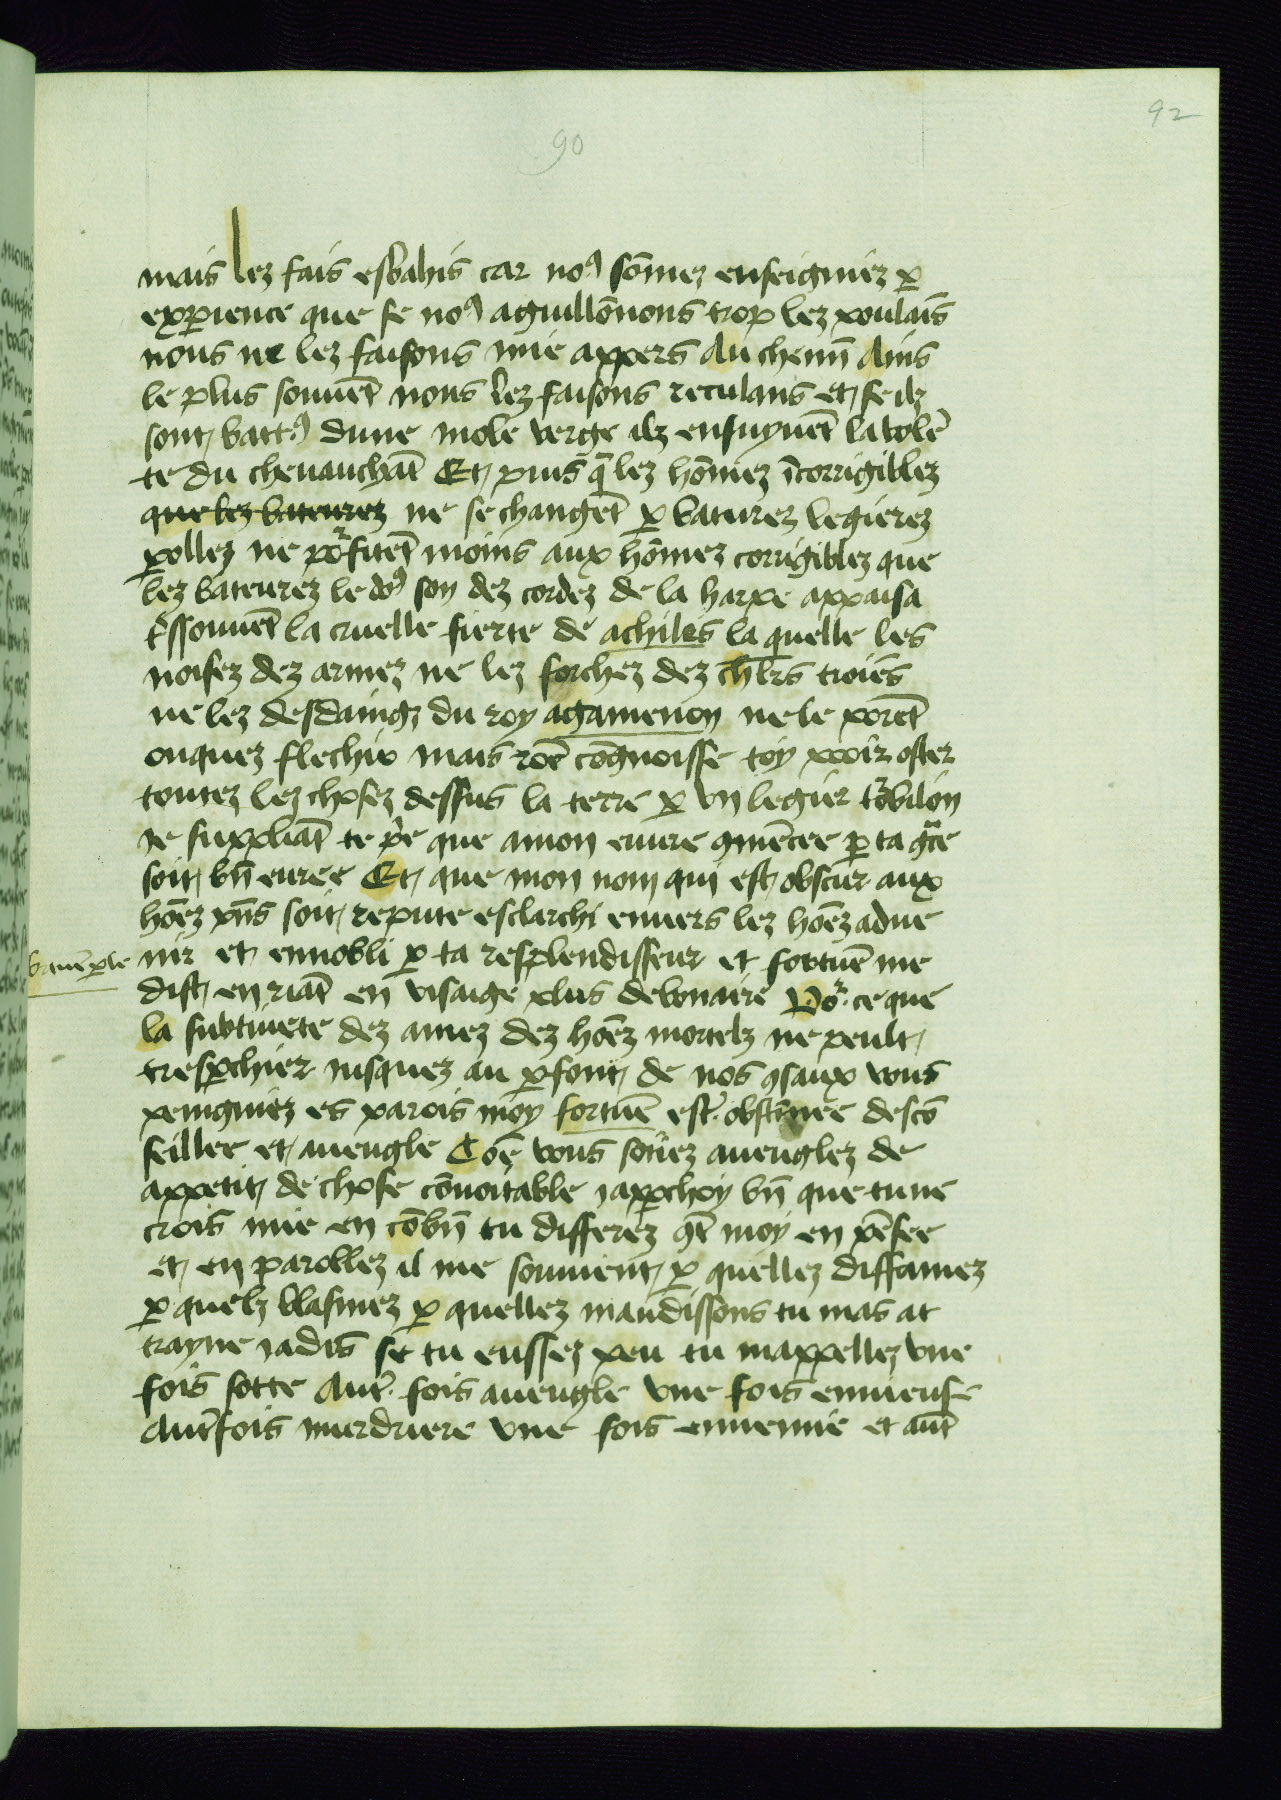 92
90
mais lez fais esbahis car noꝰ sōmez enseigniez ꝑ
exꝑience que se noꝰ aguillōnons trop lez poulaīs
nous ne lez faisons mie appers Au chemī Ains
le plus souuēt nons lez faisons reculans et se ilz
sont battꝰ dune mole verge ilz ensuyuēt la volē
te du cheuauchāt Et puis q̄ lez hōmez īcorrigiblez
que lez bateurez ne se changēt ꝑ baturez legierez
ꝑollez ne poʳfitēt moins aux hōmez corrigiblez que
lez bateurez le doꝰ son dez cordez de la harpe appaisa
t̾ssouuēt la cruelle fierte de achiles la quelle les
noisez dez armez ne lez forchez dez chl̄rs troiēs
ne lez desdaingz du roy agamenon ne le porēt
onquez flechir mais cōgnoisse toy pooir oster
toutez lez chosez dessus la terre ꝑ vn legier toʳbilon
Ie suppliāt te p̄e que amon euure ꝯmēcee ꝑ ta gᵃce
soit bn̄ euree Et que mon nom qui est obscur aux
hōez pn̄s soit repute esclarchi enuers lez hōez adue
nir et ennobli ꝑ ta resplendisseur et fortūe me
dist en riāt en visaige plus debonaire Poʳ ce que
la subtiuete dez amez dez hōez mortelz ne peult
tresꝑchier iusquez au ꝓfont de nos ꝯsaux vous
peingniez es parois moy fortūe est̾ obstinee descō
seillee et aueugle Cōe vous soiiez aueuglez de
appetit de chose cōuoitable iapꝑchoy bn̄ que tu ne
crois mie en cōbn̄ tu differez ꝯt̄ moy en pēsee
et en parollez il me souuient ꝑ quellez diffamez
ꝑ quelz blasmez ꝑ quellez maudissons tu mas at
trayne iadis se tu eussez peu tu mappellez vne
fois sotte Aut̾ fois aueugle vne fois enuieuse
Aut̾fois murdriere vne fois ennemie et aut̾